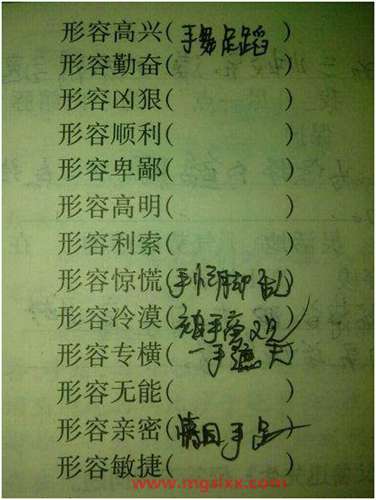 形容高兴(手舞足蹈)
形容勤奋( )
形容凶狠( )
形容顺利( )
形容卑鄙( )
形容高明( )
形容利索( )
形容惊慌(手忙脚乱)
形容冷漠(袖手旁观)
形容专横(一手遮天)
形容无能( )
形容亲密(情同手足)
形容敏捷( )
www.mgslxx.com